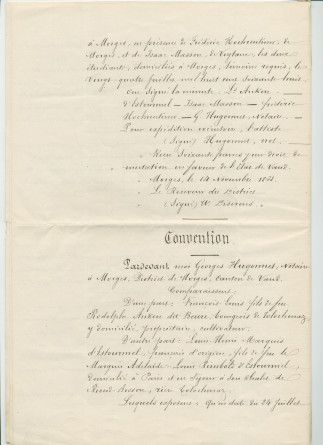 à Morges, en présence de Frédéric Hochreutiner, de
Morges, et de Isaac Masson de Veytaux, les deux
étudiants, domiciliés à Morges, témoins requis, le
Vingt quatre juillet mil huit cent soixante trois
Ont signé la minute. Ls Anken —
d'Estourmel — Isaac Masson — Frédéric
Hochreutiner — G. Hugonnet, Notaire —
Pour expédition conforme, l'atteste
(Signé) Hugonnet, not.
Reçu soixante francs pour droit de
mutation en faveur de l'Etat de Vaud.
Morges, le 14 Novembre 1863.
Le Receveur du District
(Signé)
Convention
Pardevant moi Georges Hugonnet, Notaire
à Morges, District de Morges, Canton de Vaud
Comparaissent:
D'une part: François Louis fils de feu
Rodolphe Anken du Bourg, bourgeois de Tolochenaz,
y domicilié, propriétaire, cultivateur.
D'autre part: Louis Henri Marquis
d'Estourmel, français d'origine, fils de feu le
Marquis Adélaïde Louis d'Estourmel,
Domicilié à Paris et en Suisse à son chalet de
rière Tolochenaz
Lesquels exposent: Qu'en date du 24 Juillet